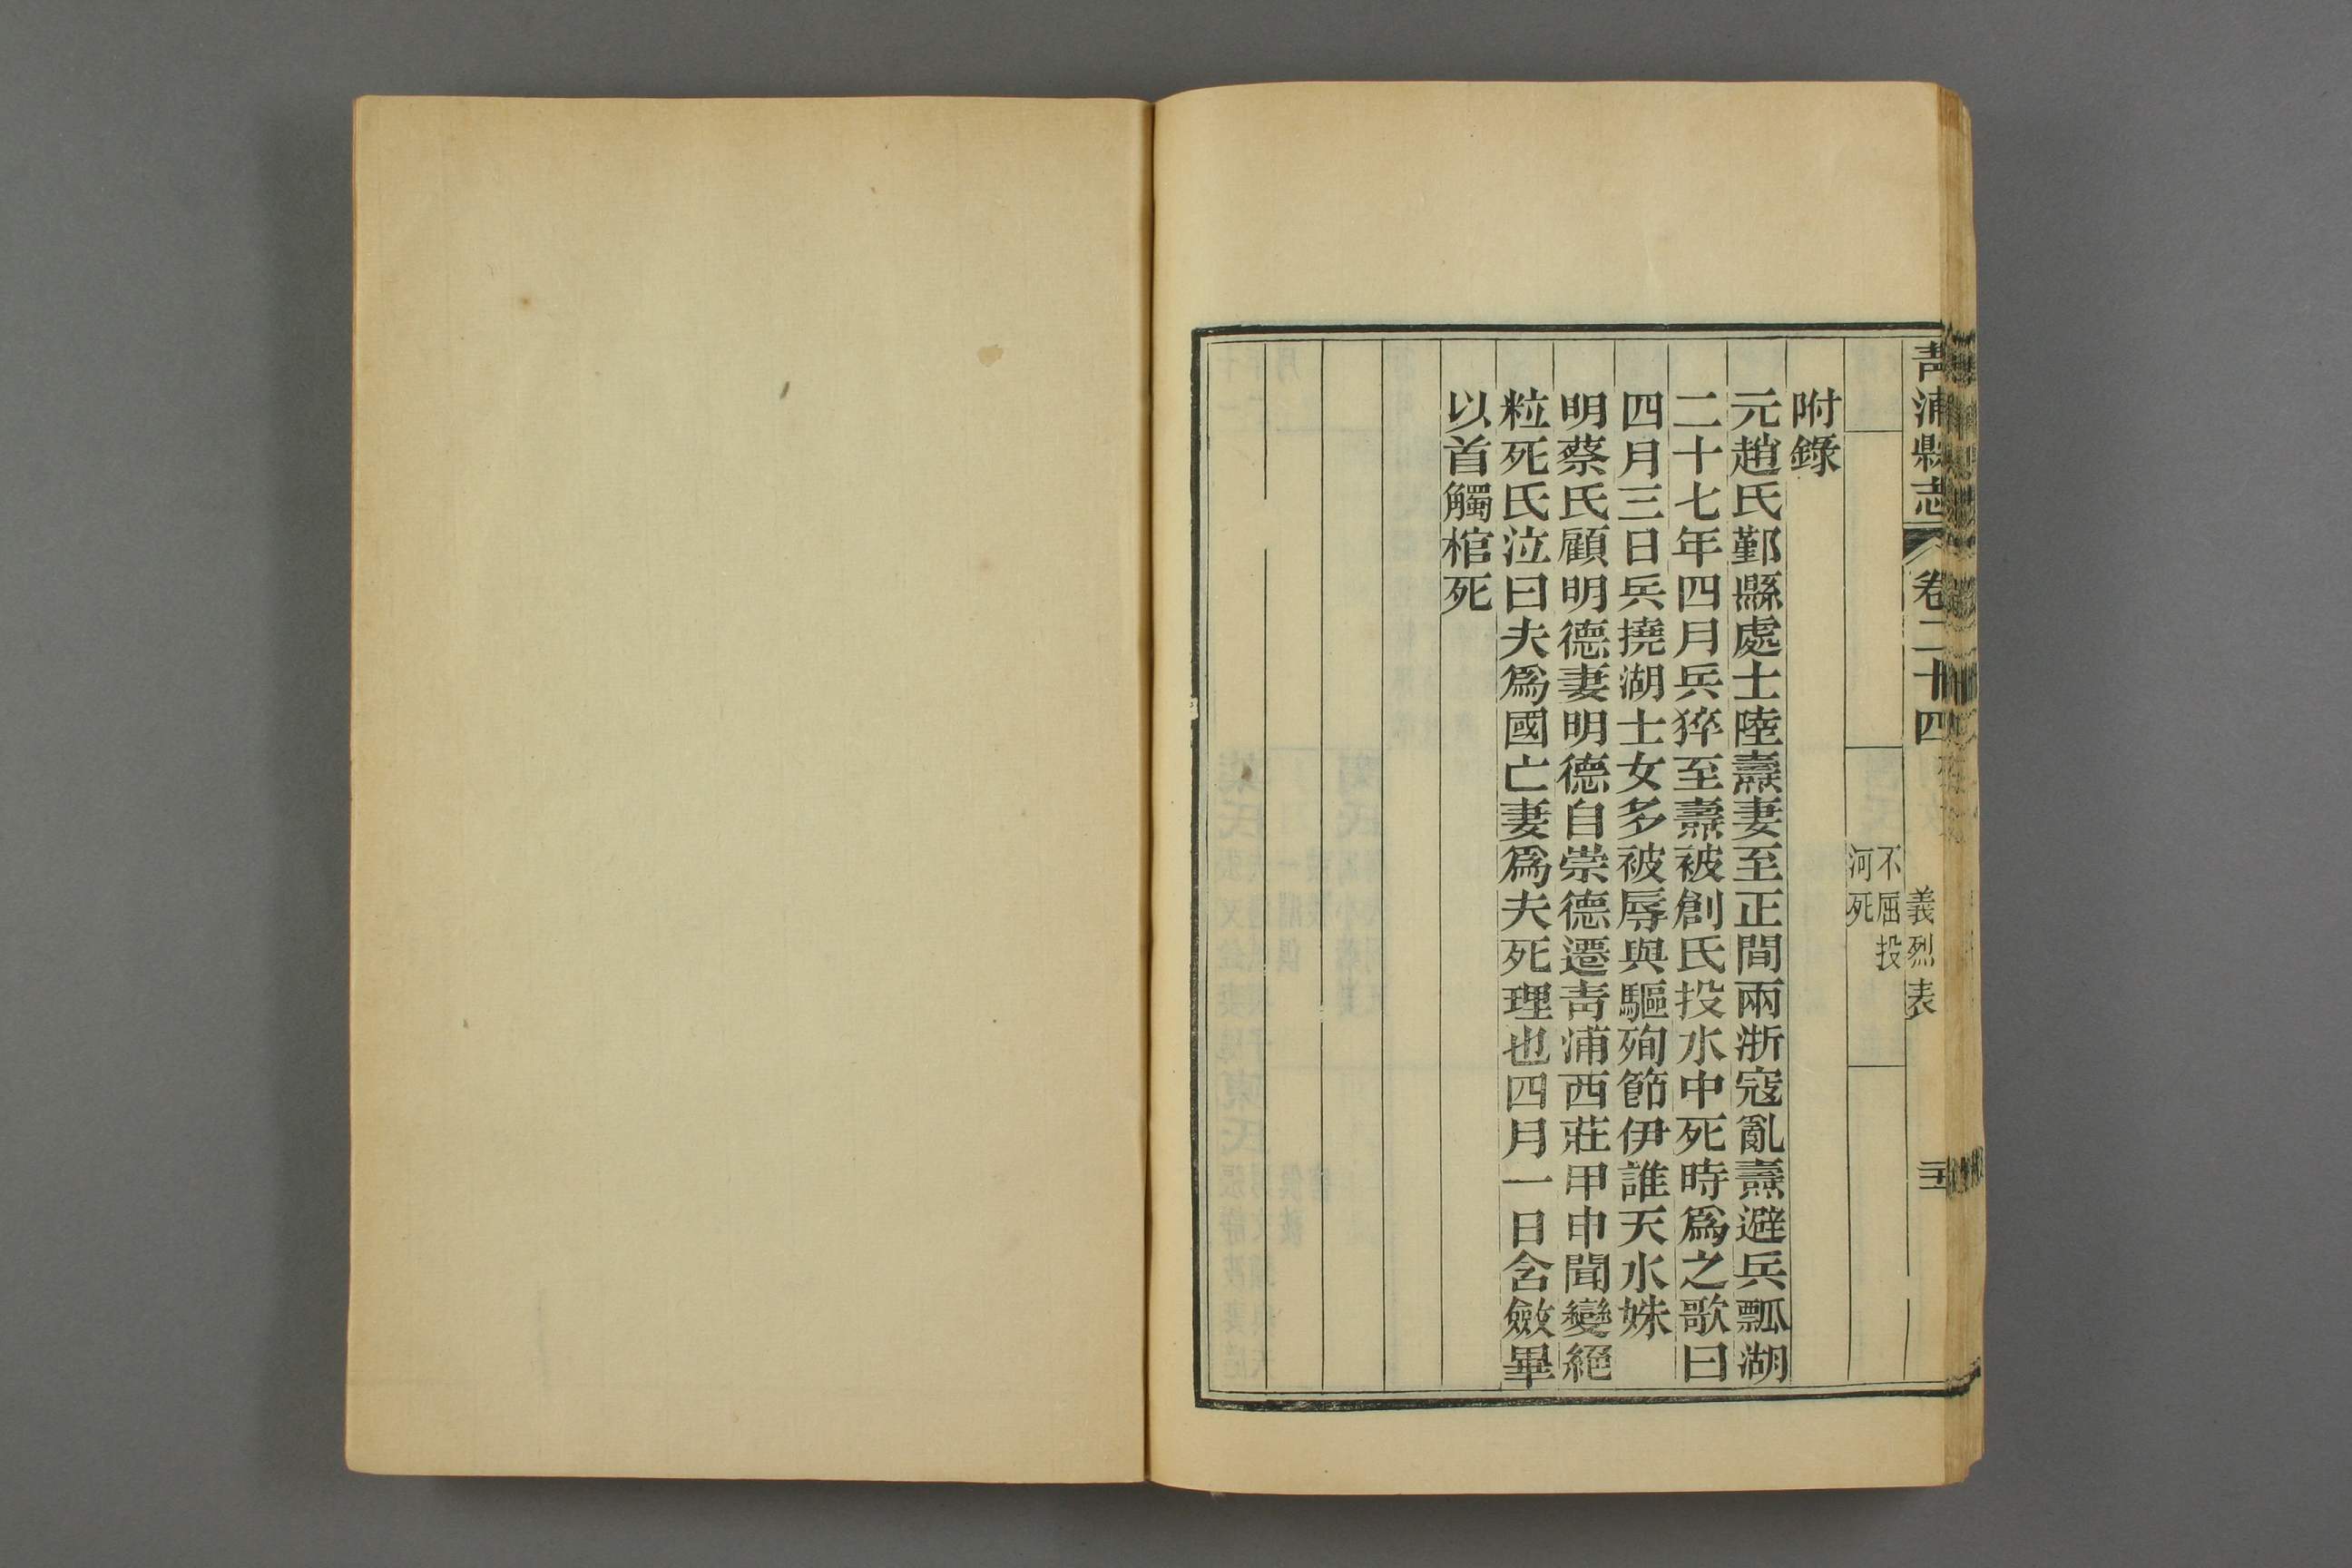 青浦縣志 卷二十四 義烈表
不屈投
河死
附錄
元趙氏鄞縣處士陸燾妻至正間兩浙寇亂燾避兵瓢湖
二十七年四月兵猝至燾被創氏投水中死時爲之歌曰
四月三日兵撓湖士女多被辱與驅殉節伊誰天水姝
明蔡氏顧明德妻明德自崇德遷青浦西莊甲申聞變絕
粒死氏泣曰夫爲國亡妻爲夫死理也四月一日含斂畢
以首觸棺死